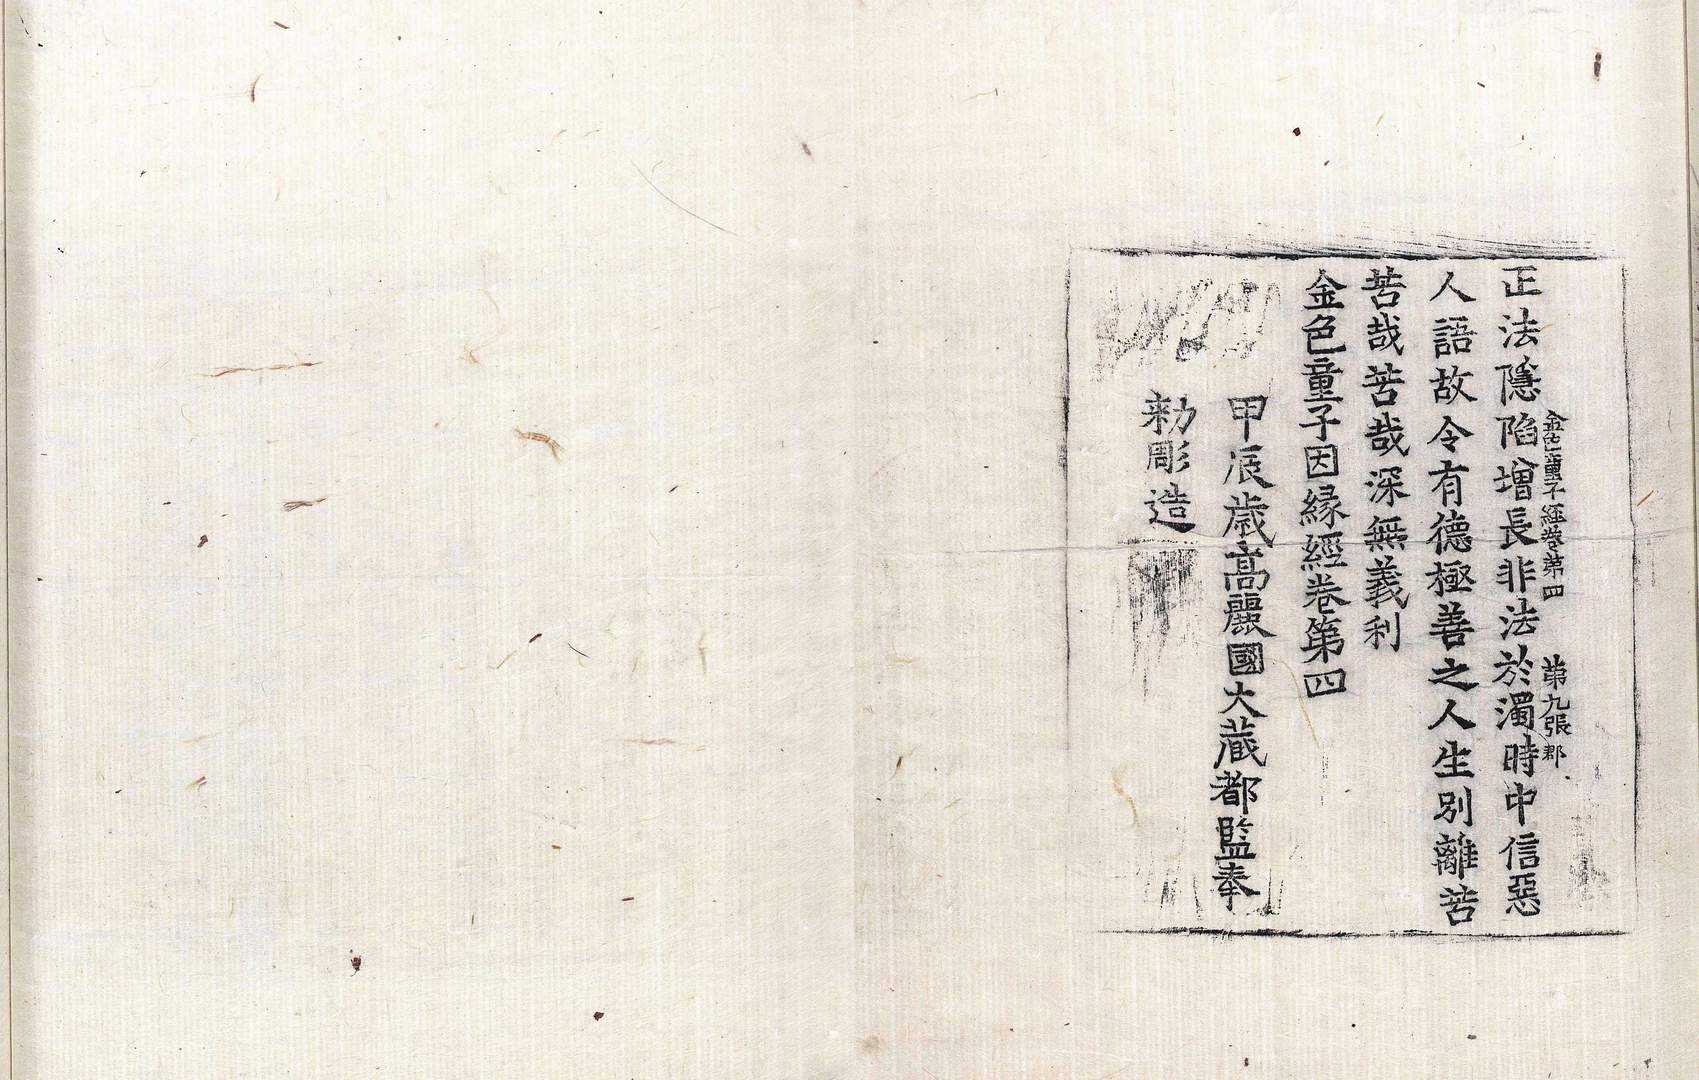 金色童子經卷第四 第九張 郡
正法隱陷增長非法於濁時中信惡
人語故令有德極善之人生別離苦
苦哉苦哉深無義利
金色童子因縁經卷第四
甲辰歲高麗國大藏都監奉
勑彫造